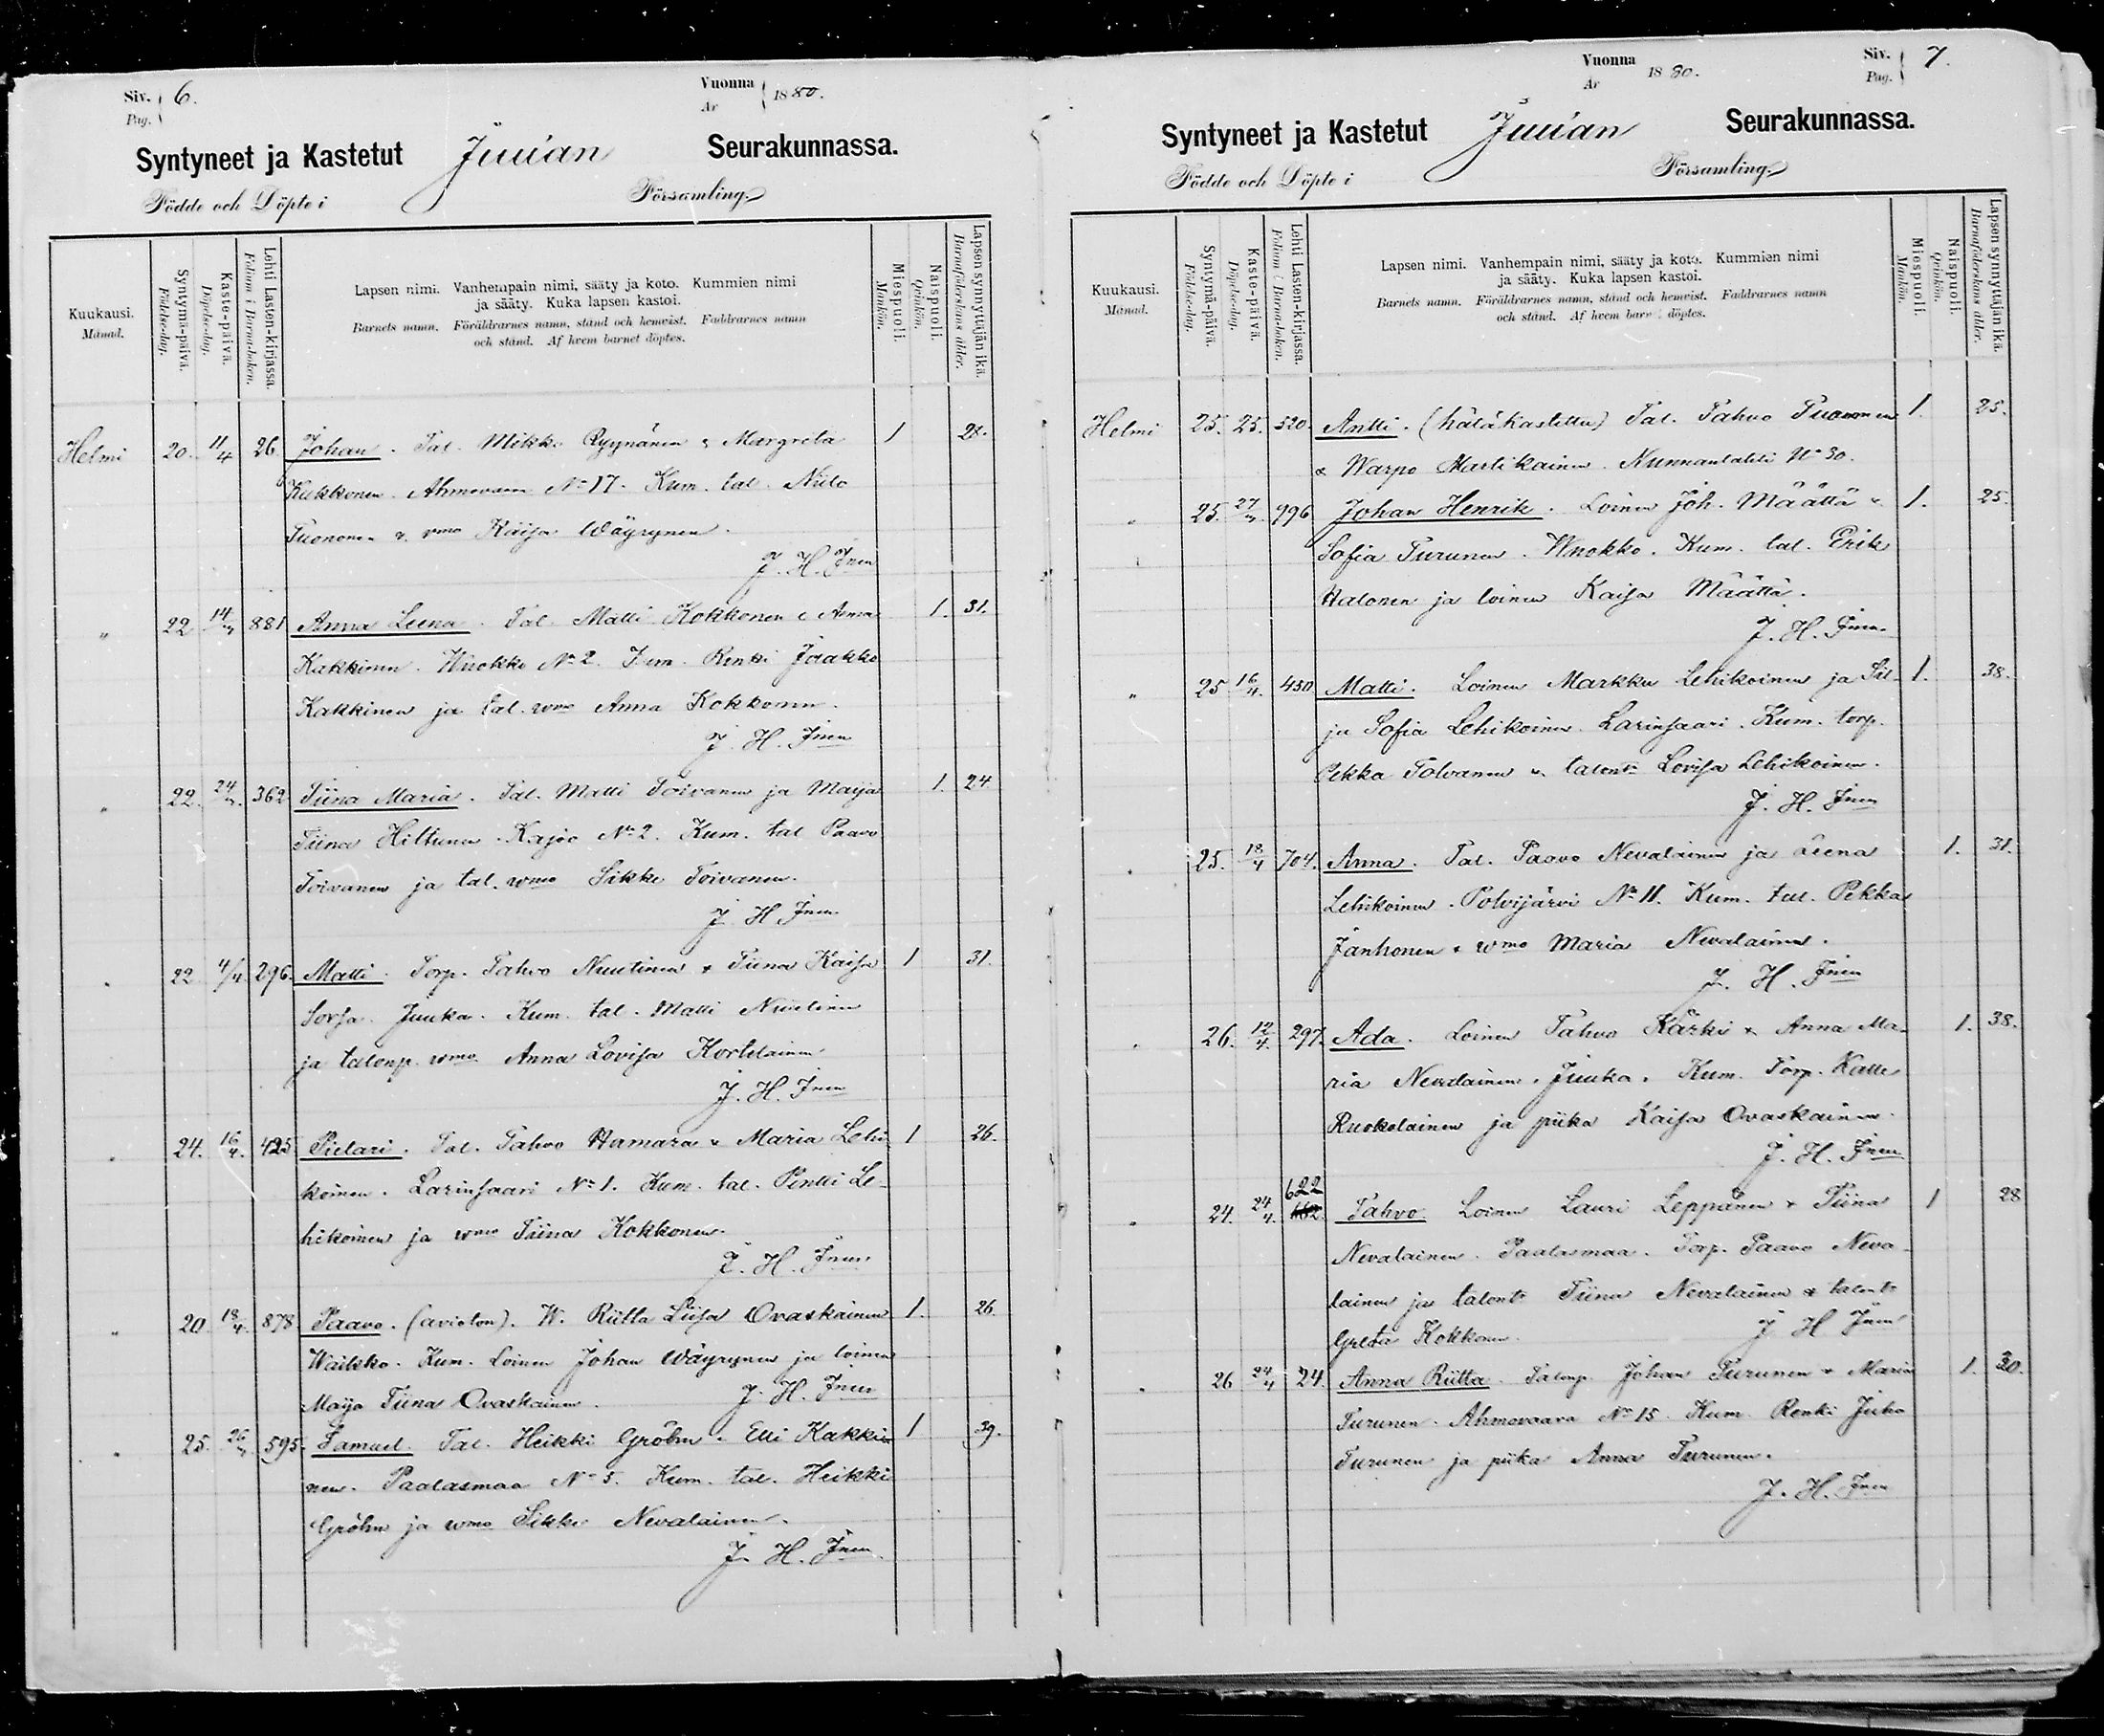 Siv. 6.
Pag.
Vuonna
År 1880.
Syntyneet ja Kastetut Juuan Seurakunnassa.
Födde och Döpte i Församling.
Kuukausi.
Månad.
Syntymä-päivä.
Födelse-dag.
Kaste-päivä.
Döpelse-dag.
Lehti Lasten-kirjassa.
Folium i Barna-boken.
Lapsen nimi. Vanhempain nimi, sääty ja koto. Kummien nimi
ja sääty. Kuka lapsen kastoi.
Barnets namn. Föräldrarnes namn, stånd och hemvist. Faddrarnes namn
och stånd. Af hvem barnet döptes.
Miespuoli.
Mankön.
Naispuoli.
Qvinkön.
Lapsen synnyttäjän ikä.
Barnaföderskans ålder.
Helmi 20. 11/4 26. Johan. Tal. Mikko Ryynänen & Margreta 1 28.
Kukkonen. Ahmovaara No 17. Kum. tal. Niilo
Tuononen & vmo Kaisa Wäyrynen.
J. H. Jnen
" 22 14/3 881 Anna Leena. Tal. Matti Kokkonen & Anna 1. 31.
Kakkinen. Wuokko No 2. Kum. Renki Jaakko
Kakkinen ja tal. wmo Anna Kokkonen.
J. H. Jnen
" 22. 24/3. 362 Tiina Maria. Tal. Matti Toivanen ja Maija 1. 24
Tiina Hiltunen. Kajoo No 2. Kum. tal Paavo
Toivanen ja tal. wmo Sikke Toivanen.
J. H. Jnen
" 22 4/4. 296. Matti. Torp. Tahvo Nuutinen & Tiina Kaisa 1 31.
Sorsa. Juuka. Kum. tal. Matti Nuutinen
ja talonp. wmo Anna Lovisa Kortelainen
J. H. Jnen
" 24. 16/4. 425 Pietari. Tal. Tahvo Hamara & Maria Lehi- 1 26.
koinen. Larinsaari No 1. Kum. tal. Pentti Le-
hikoinen ja wmo Tiina Kokkonen.
J. H. Jnen
" 20 18/4. 878 Paavo. (avioton). W. Riitta Liisa Ovaskainen 1. 26.
Waikko. Kum. Loinen Johan Wäyrynen ja loinen
Maija Tiina Ovaskainen. J. H. Jnen
" 25. 26/3 595. Samuel. Tal. Heikki Gröhn & Elli Kakki- 1 39.
nen. Paalasmaa No 5. Kum. tal. Heikki
Gröhn ja wmo Sikke Nevalainen.
J. H. Jnen.
Vuonna
År 1880.
Siv. 7.
Pag.
Syntyneet ja Kastetut Juuan Seurakunnassa.
Födde och Döpte i Församling.
Kuukausi.
Månad.
Syntymä-päivä.
Födelse-dag.
Kaste-päivä.
Döpelse-dag.
Lehti Lasten-kirjassa.
Folium i Barna-boken.
Lapsen nimi. Vanhempain nimi, sääty ja koto. Kummien nimi
ja sääty. Kuka lapsen kastoi.
Barnets namn. Föräldrarnes namn, stånd och hemvist. Faddrarnes namn
och stånd. Af hvem barnet döptes.
Miespuoli.
Mankön.
Naispuoli.
Qvinkön.
Lapsen synnyttäjän ikä.
Barnaföderskans ålder.
Helmi 25. 25. 520 Antti. (hätäkastettu) Tal. Tahvo Tuononen 1. 25.
& Warpo Martikainen. Nunnanlahti No 30.
" 25. 27/3. 996 Johan Henrik. Loinen Joh. Määttä & 1. 25.
Sofia Turunen. Wuokko. Kum. tal. Erik
Halonen ja loinen Kaisa Määttä.
J. H. Jnen
" 25 16/4. 450 Matti. Loinen Markku Lehikoinen ja Sil- 1. 38.
ja Sofia Lehikoinen. Larinsaari. Kum. torp.
Pekka Tolvanen & talontr Lovisa Lehikoinen.
J. H. Jnen
" 25. 18/4 704. Anna. Tal. Paavo Nevalainen ja Leena 1. 31.
Lehikoinen. Polvijärvi No 11. Kum. tal. Pekka
Jänhonen & wmo Maria Nevalainen.
J. H. Jnen
" 26. 12/4. 297. Ada. Loinen Tahvo Kärki & Anna Ma- 1. 38.
ria Nevalainen. Juuka. Kum. Torp. Kalle
Ruokolainen ja piika Kaisa Ovaskainen.
J. H. Jnen
622
" 24. 24/4. Tahvo. Loinen Lauri Leppänen & Tiina 1 28
Nevalainen. Paalasmaa. Torp. Paavo Neva-
lainen ja talontr Tiina Nevalainen & talontr
Greta Kokkonen. J H Jnen
" 26 24/4 24. Anna Riitta. Talonp. Johan Turunen & Maria 1. 30.
Turunen. Ahmovaara No 15. Kum. Renki Juho
Turunen ja piika Anna Turunen.
J. H. Jnen